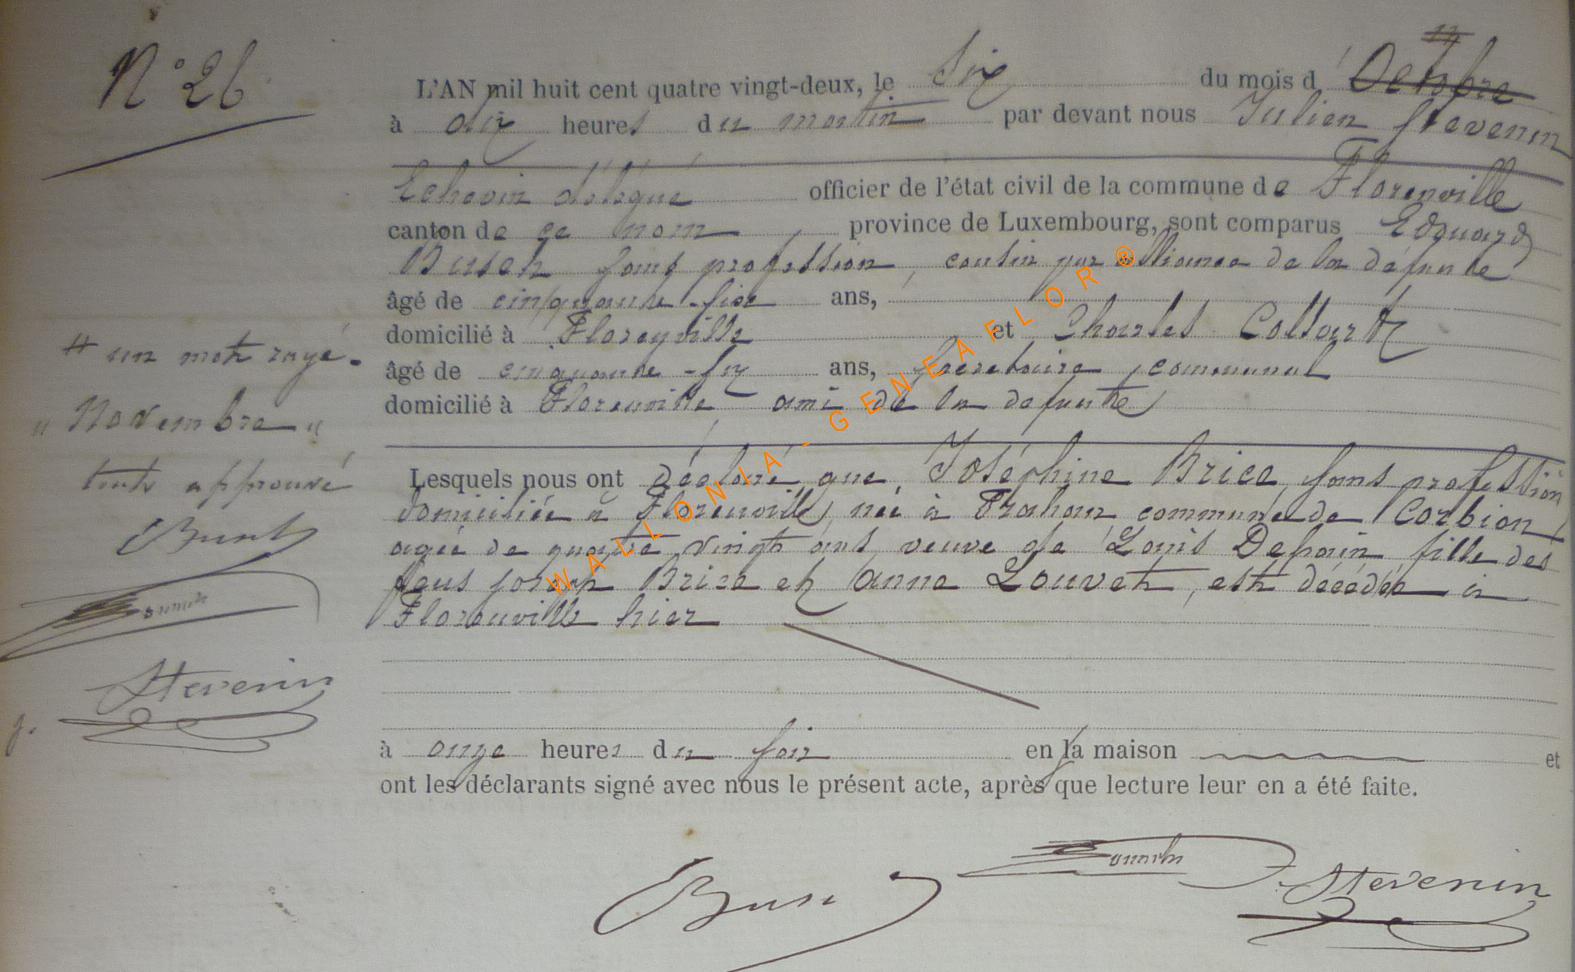 N° 26
L'AN mil huit cent quatre vingt-deux, le six du mois d' Octobre #
à dix heures du matin par devant nous Julien Stevenin
Echevin délégué officier de l'état civil de la commune de Florenville
canton de ce nom province de Luxembourg, sont comparus Edouard
Busch sans profession, cousin par alliance de la défunte
âgé de cinquante-six ans,
domicilié à Florenville et Charles Collart
âgé de cinquante-six ans, secrétaire communal
domicilié à Florenville ami de la défunte
# un mot rayé.
" Novembre "
tout approuvé
Busch
Stevenin
Lesquels nous ont déclaré que Joséphine Brice, sans profession
domiciliée à Florenville, née à Frahan commune de Corbion
agée de quatre vingt ans veuve de Louis Depain fille des
feus Brice et Anne Louvet, est décédée à
Florenville hier
à onze heures du soir en la maison et
ont les déclarants signé avec nous le présent acte, après que lecture leur en a été faite.
Busch
J. Stevenin
WALLONIA-GENEAFLOR®